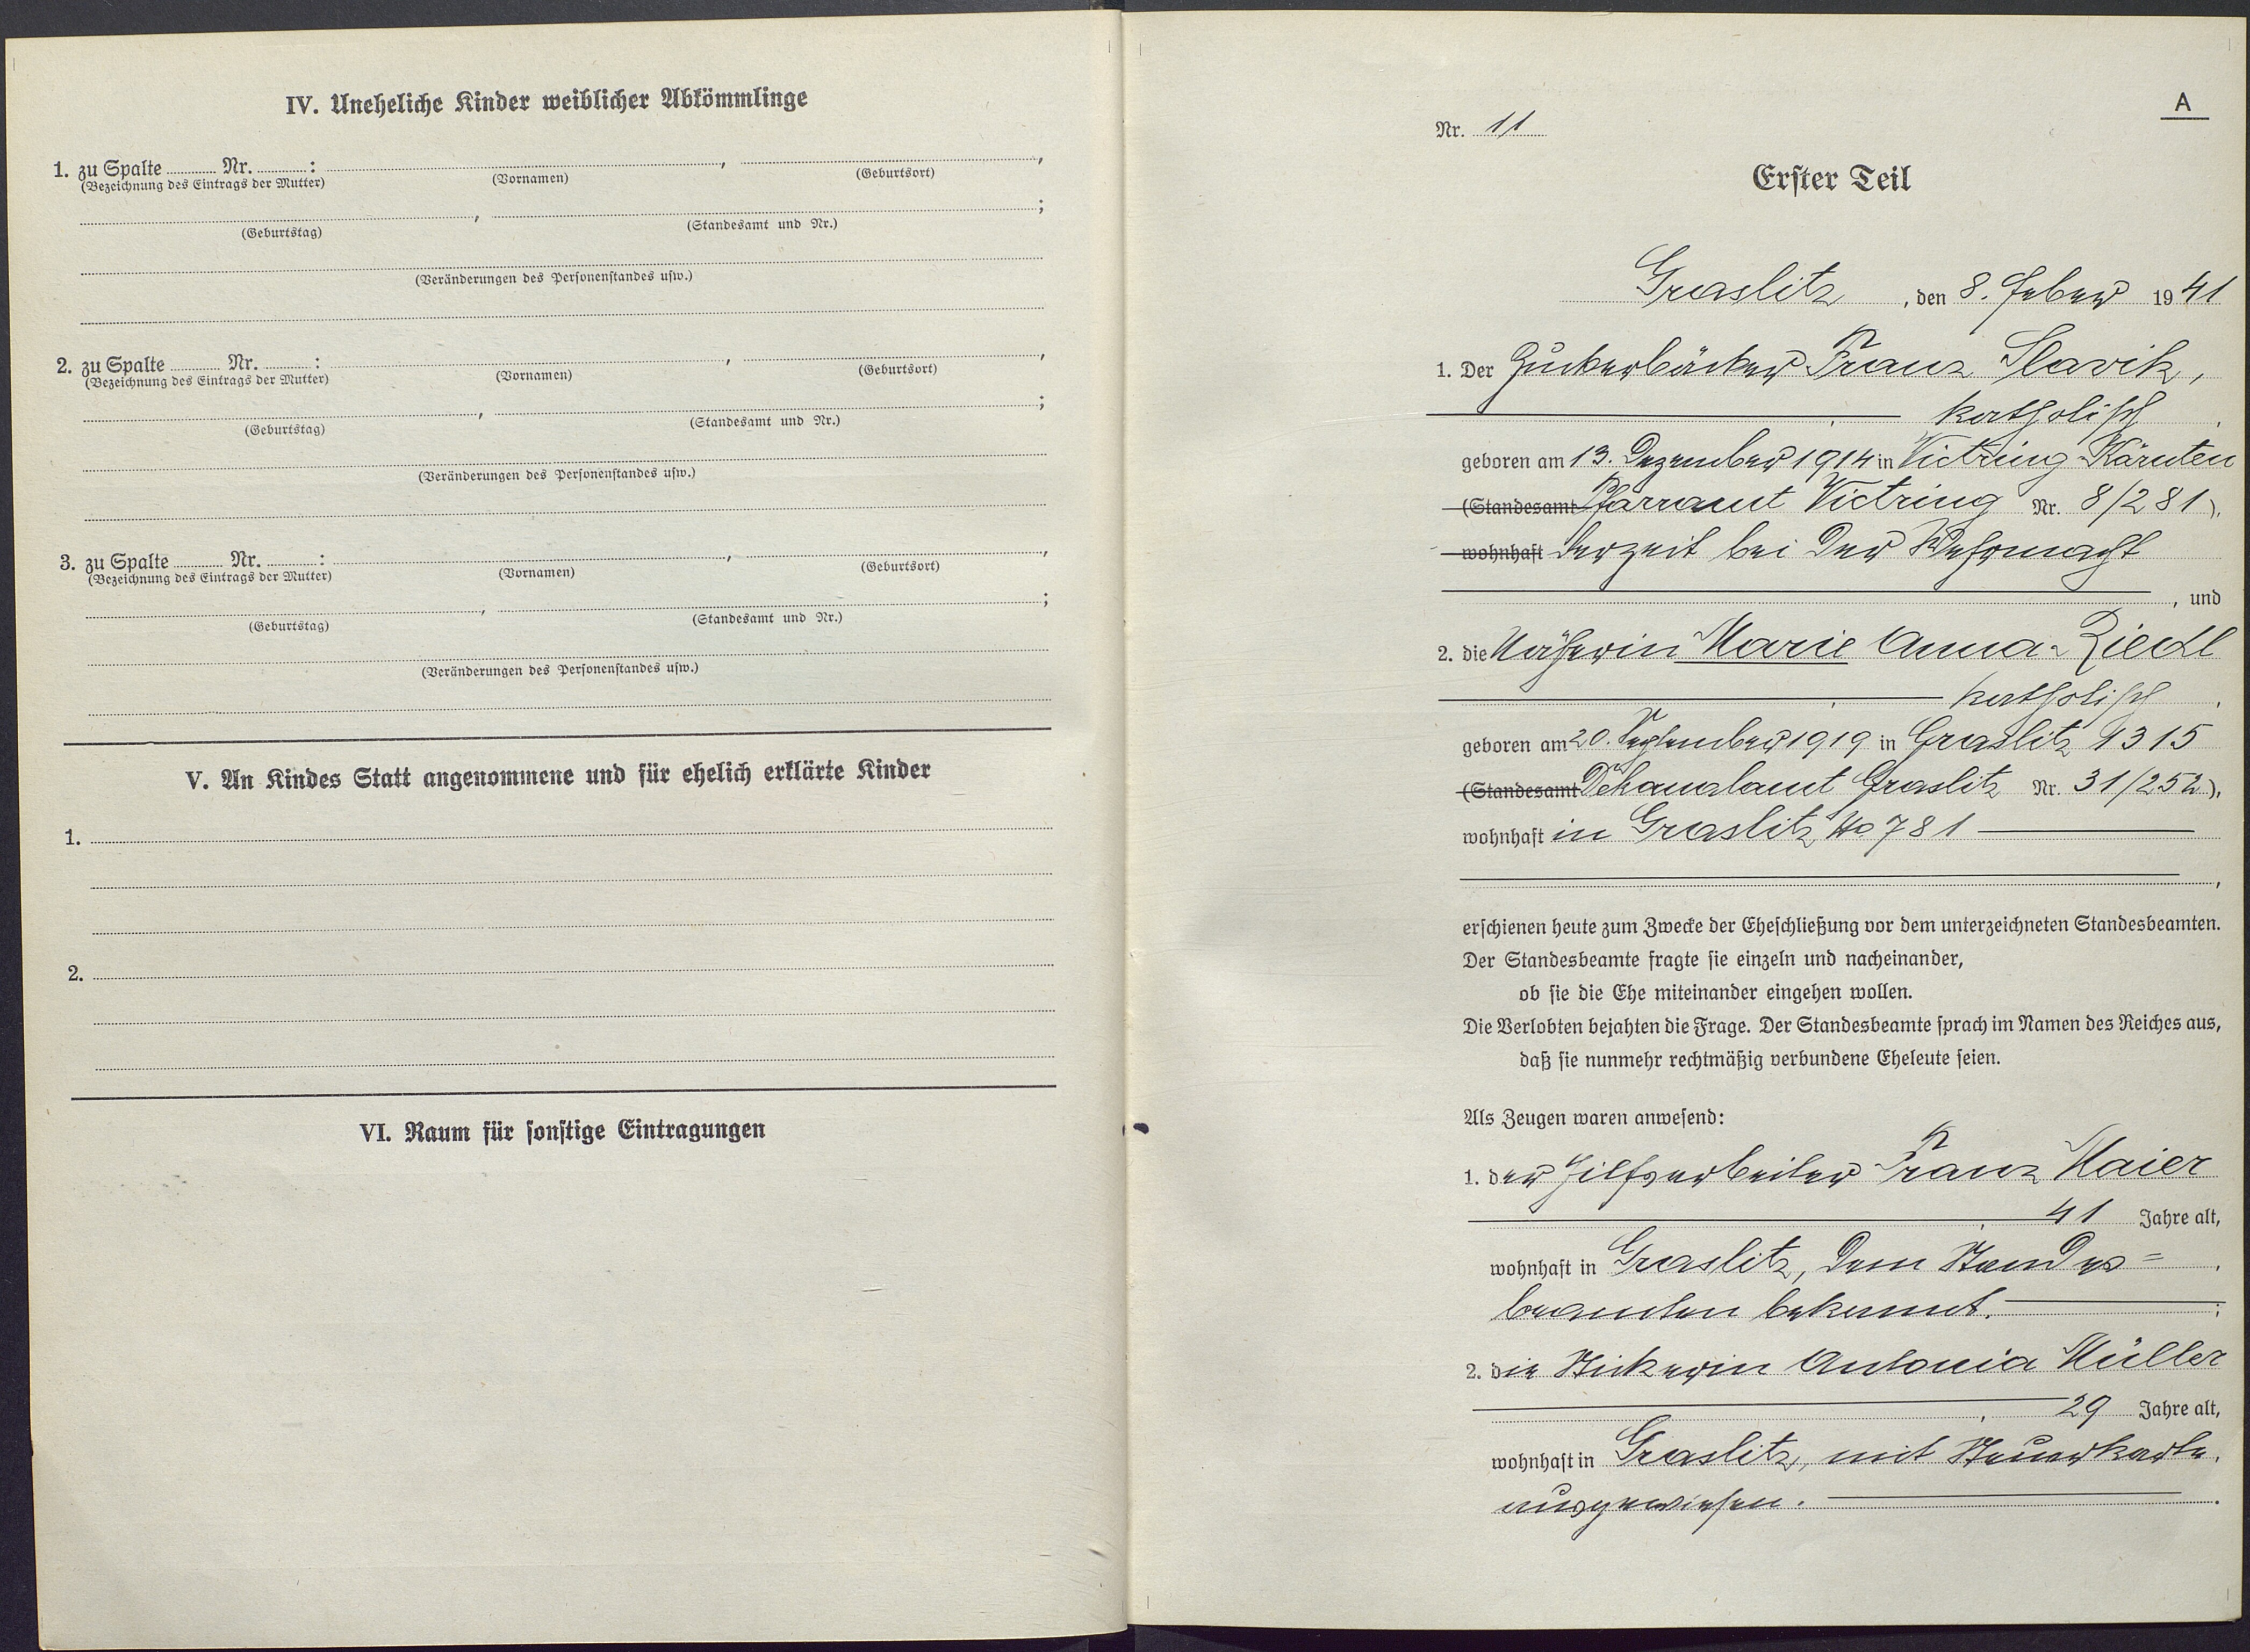 IV. Uneheliche Kinder weiblicher Abkömmlinge
1. zu Spalte Nr. : , ,
(Bezeichnung des Eintrags der Mutter) (Vornamen) (Geburtsort)
, ;
(Geburtstag) (Standesamt und Nr.)
(Veränderungen des Personenstandes usw.)
2. zu Spalte Nr. : , ,
(Bezeichnung des Eintrags der Mutter) (Vornamen) (Geburtsort)
, ;
(Geburtstag) (Standesamt und Nr.)
(Veränderungen des Personenstandes usw.)
3. zu Spalte Nr. : , ,
(Bezeichnung des Eintrags der Mutter) (Vornamen) (Geburtsort)
, ;
(Geburtstag) (Standesamt und Nr.)
(Veränderungen des Personenstandes usw.)
V. An Kindes Statt angenommene und für ehelich erklärte Kinder
1.
2.
VI. Raum für sonstige Eintragungen
A
Nr. 11
Erster Teil
Graslitz, den 8. Feber 1941
1. Der Zuckerbäcker Franz Slavik,
katholisch,
geboren am 13. Dezember 1914 in Victring Kärnten
(Standesamt Pfarramt Victring Nr. 8/281),
wohnhaft derzeit bei der Wehrmacht
, und
2. die Näherin Marie Anna Riedl
katholisch,
geboren am 20. September 1919 in Graslitz 1315
(Standesamt Dekanalamt Graslitz Nr. 31/252),
wohnhaft in Graslitz No 781
,
erschienen heute zum Zwecke der Eheschließung vor dem unterzeichneten Standesbeamten.
Der Standesbeamte fragte sie einzeln und nacheinander,
ob sie die Ehe miteinander eingehen wollen.
Die Verlobten bejahten die Frage. Der Standesbeamte sprach im Namen des Reiches aus,
daß sie nunmehr rechtmäßig verbundene Eheleute seien.
Als Zeugen waren anwesend:
1. der Hilfsarbeiter Franz Maier
, 41 Jahre alt,
wohnhaft in Graslitz, dem Standes=
beamten bekannt. ;
2. die Stickerin Antonia Müller
, 29 Jahre alt,
wohnhaft in Graslitz, mit Steuerkarte
ausgewiesen.